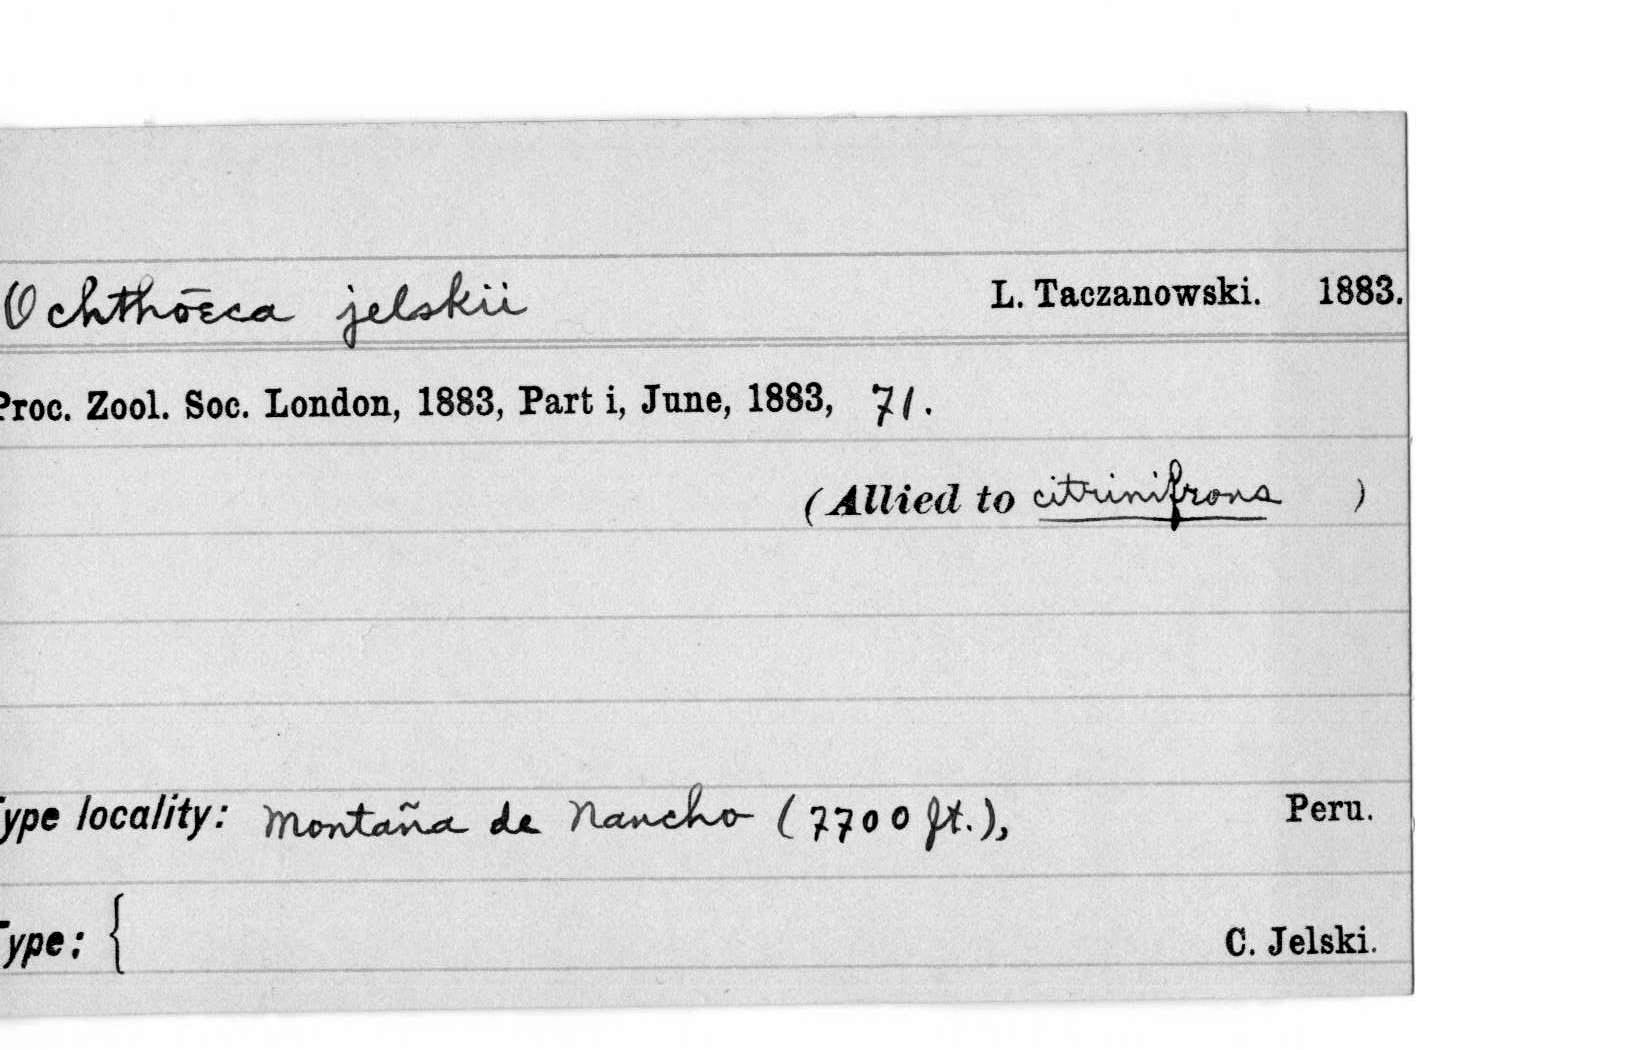 Ochthōeca jelskii L. Taczanowski. 1883.
Proc. Zool. Soc. London, 1883, Part i, June, 1883, 71.
(Allied to citrinifrons )
Type locality: Montaña de Nancho (7700 ft.), Peru.
Type: { C. Jelski.